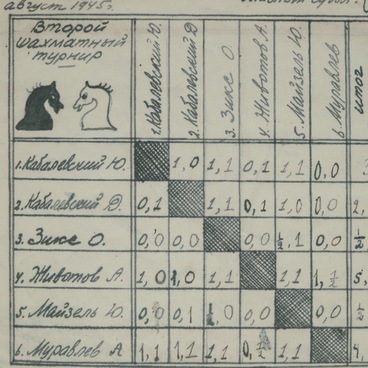 август 1945г.
Второй
шахматный
турнир
1. Кабалевский Ю.
2. Кабалевский Д
3. Зикс О.
4. Животов А.
5. Майзель Ю.
6. Муравлев
итог
1. Кабалевский Ю. 1,0 1,1 0,1 1,1 0,0
2. Кабалевский Д. 0,1 1,1 0,1 1,0 0,0
3. Зикс О. 0,0 0,0 0,0 ½,1 0,0 ½
4. Животов А. 1,0 1,0 1,1 1,1 1,½ 5,
5. Майзель Ю. 0,0 0,1 ½,0 0,0 0,0
6. Муравлев А 1,1 1,1 1,1 0,½ 1,1 4,